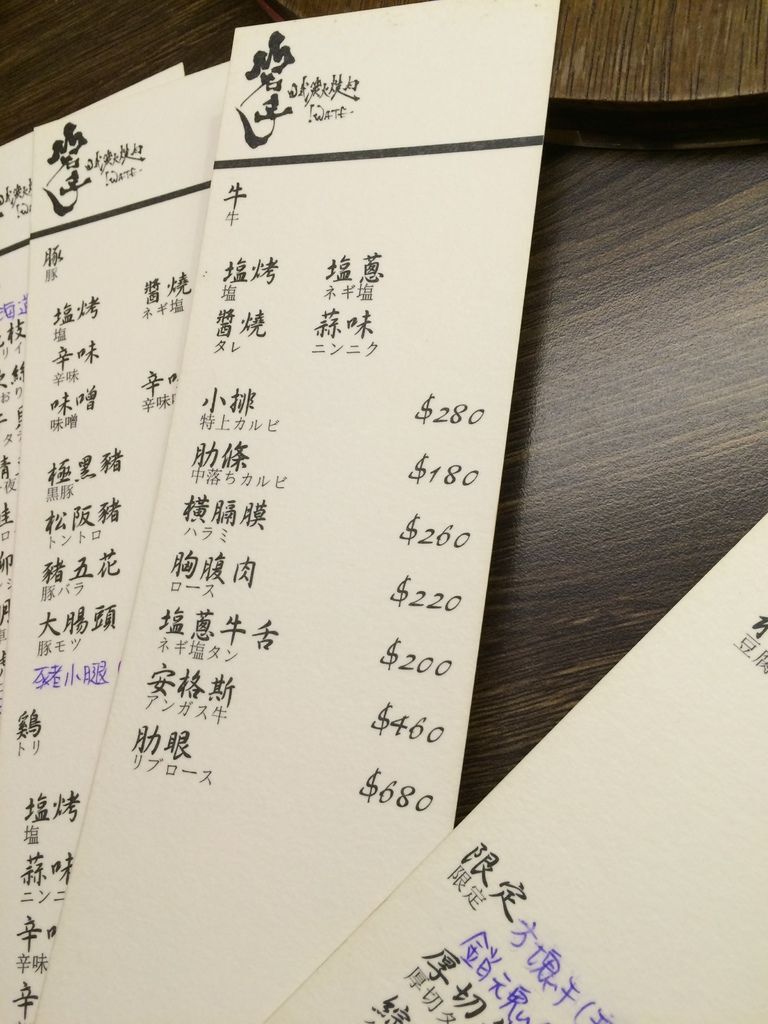 炭火燒肉
牛
牛
塩烤 塩蔥
塩 ネギ塩
醬燒 蒜味
タレ ニンニク
小排 $280
特上カルビ
肋條 $180
中落ちカルビ
橫膈膜 $260
ハラミ
胸腹肉 $220
ロース
塩蔥牛舌 $200
ネギ塩タン
安格斯 $460
アンガス牛
肋眼 $680
リブロース
豚
豚
塩烤 醬燒
塩 ネギ塩
辛味
辛味
味噌 辛
味噌 辛味
極黑豬
黒豚
松阪豬
トントロ
豬五花
豚バラ
大腸頭
豚モツ
豬小腿
鷄
トリ
塩烤
塩
蒜味
ニンニ
辛
辛味
辛
豆腐
限定 方塊牛
限定
厚切
厚切タ